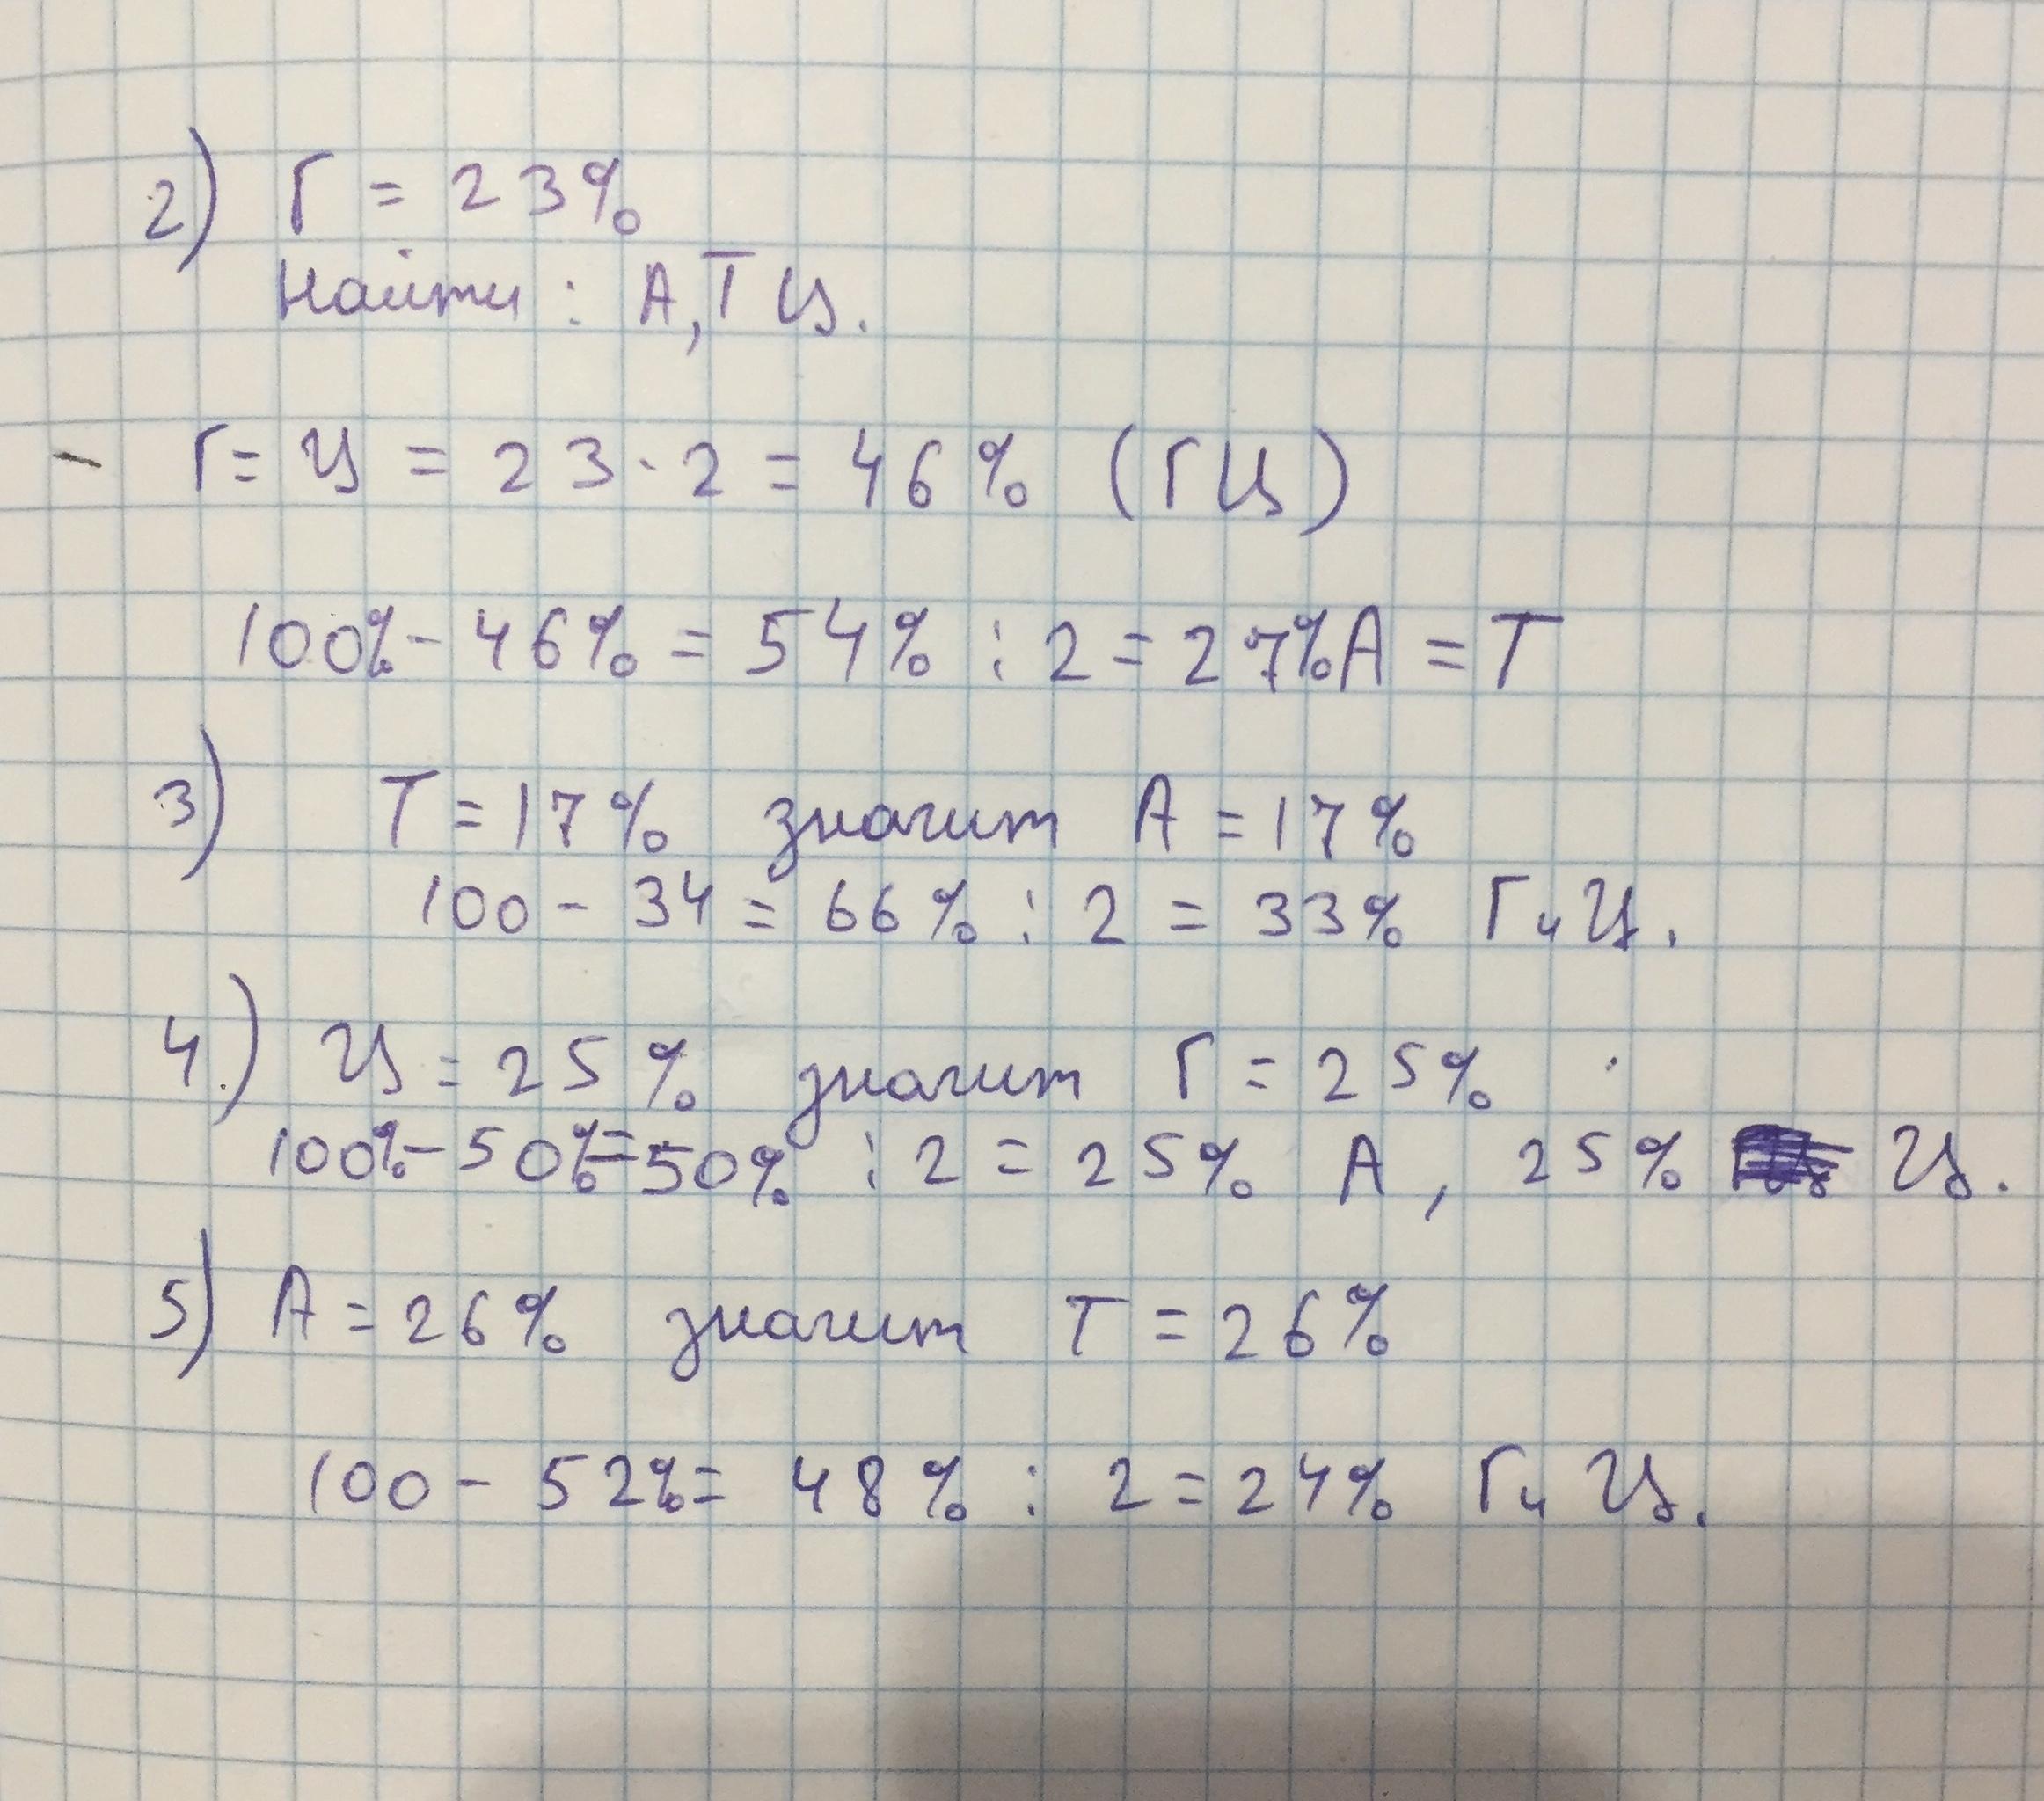 2) Г = 23%
Найти : А, Т Ц.
- Г = Ц = 23 · 2 = 46% (ГЦ)
100% - 46% = 54% : 2 = 27% А = Т
3) Т = 17% значит А = 17%
100 - 34 = 66% : 2 = 33% Г и Ц.
4.) Ц = 25% значит Г = 25%
100% - 50% = 50% : 2 = 25% А, 25% Ц.
5) А = 26% значит Т = 26%
100 - 52% = 48% : 2 = 24% Г и Ц.